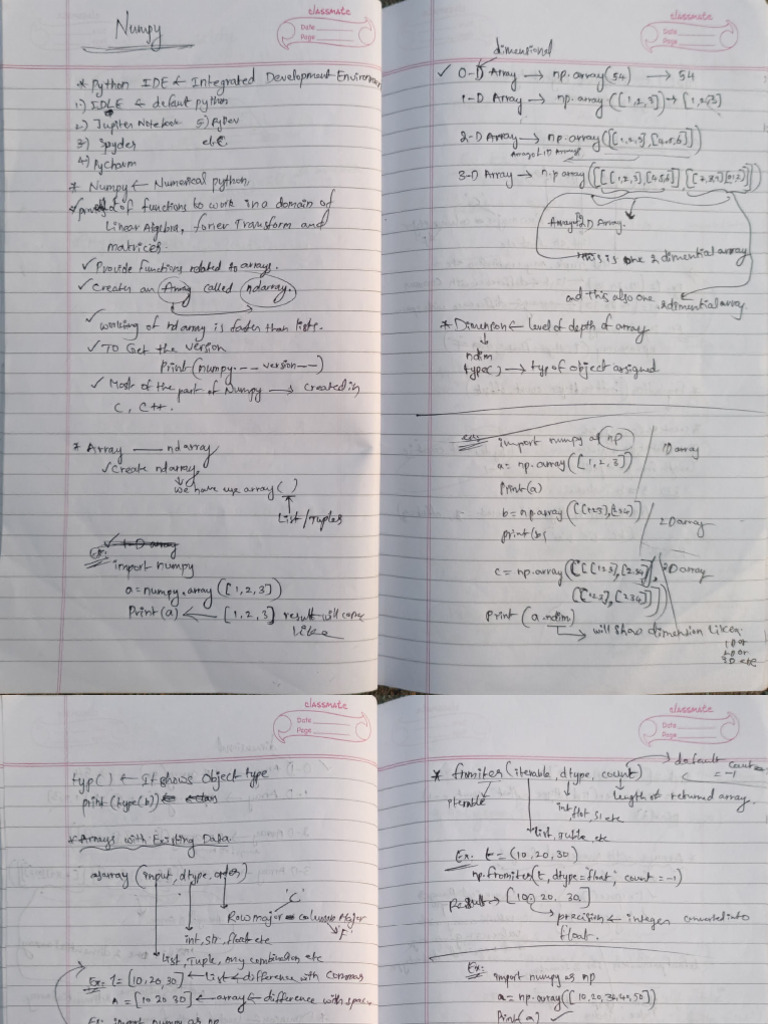 Numpy
classmate
Date
Page
* Python IDE ← Integrated Development Environmen
1.) IDLE ← default python
2.) Jupiter Notebook 5) Pydev
3) Spyder etc.
4) Pycharm
* Numpy ← Numerical python,
of functions to work in a domain of
Linear Algebra, forier Transform and
matrices.
✓ Provide functions related to arrays.
✓ Creates an Array called ndarray.
✓ working of nd array is faster than lists.
✓ To Get the version
Print(numpy.__version__)
✓ Most of the part of Numpy → created in
C, C++.
* Array — ndarray
✓ Create ndarray,
we have use array( )
List/Tuples
✓ 1-D array
Ex:
import numpy
a = numpy.array([1,2,3])
Print(a) ← [1,2,3] result will come
Like
classmate
Date
Page
dimensional
✓ 0-D Array → np.array(54) → 54
1-D Array → np.array([1,2,3]) → [1,2,3]
2-D Array → np.array([[1,2,3],[4,5,6]])
Array of 1D Arrays
3-D Array → n.p array([[[1,2,3],[4,5,6]],
Array of 2D Array.
this is one 2 dimential array
and this also one 2dimential array
* Dimension ← level of depth of array
ndim
type( ) → typ of object asigned
import numpy as np
a = np.array([1,2,3]) 1D array
Print(a)
b = np.array([[1 2 3],[2 3 4]]) 2D array
print(b)
c = np.array([[[1 2 3],[2 3 4]], 3D array
[[1 2 3],[2 3 4]]])
Print (a.ndim)
→ will show dimension like
1D or
2D or
3D etc
classmate
Date
Page
typ( ) ← It shows Object type
print(type(b)) ← class
* Arrays with Existing Data.
asarray (input, dtype, order)
'C'
Row major or column Major
'F'
int, str, float etc
List, Tuple, any combination etc
Ex: l = [10,20,30] ← List ← difference with commas
A = [10 20 30] ← array ← difference with space
Ex: import numpy as np
classmate
Date
Page
default count
= -1
* fromiter(iterable, dtype, count)
iterable
int, flot, st, etc
length of returned array.
list, tuple, etc
Ex: t = (10,20,30)
np.fromiter(t, dtype=float, count=-1)
Result → [10. 20. 30.]
→ precision ← integer converted into
float.
Ex:
import numpy as np
a = np.array([10,20,32,40,50])
Print(a) ✓